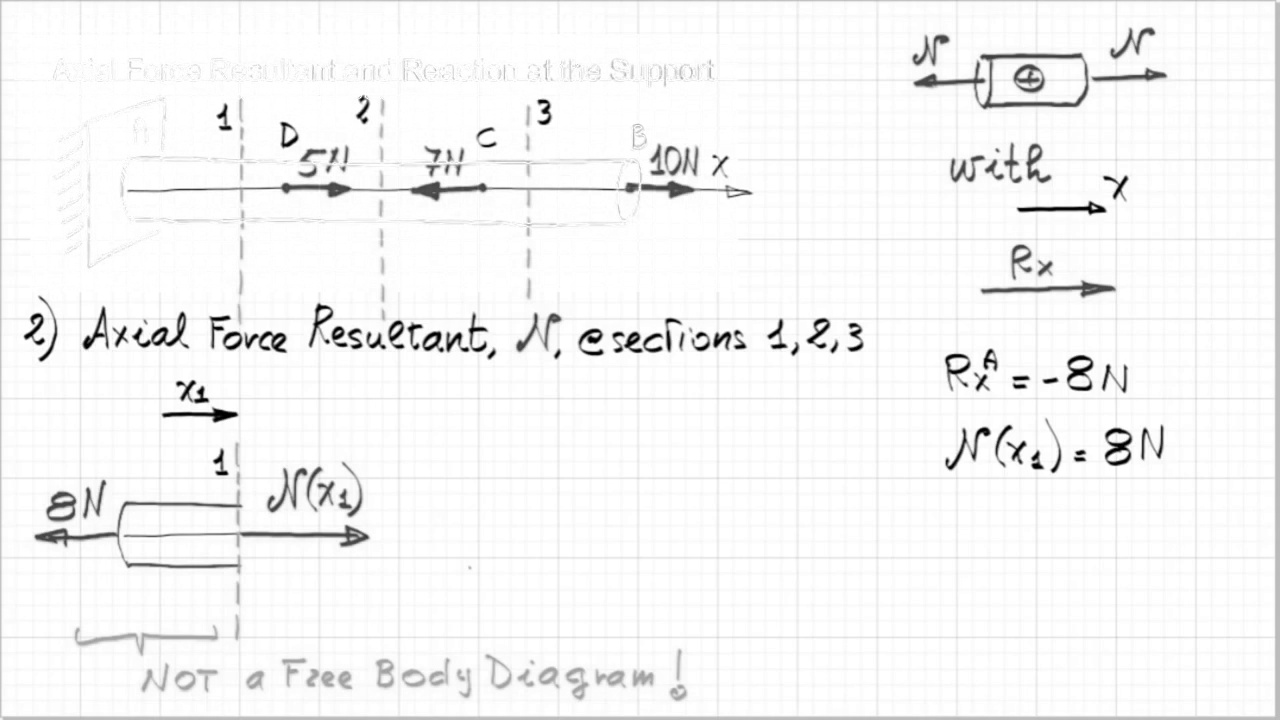 Axial Force Resultant and Reaction at the Support
A 1 D 5N 2 7N C 3 B 10N x
2) Axial Force Resultant, N, @ sections 1, 2, 3
x1
1
8N N(x1)
NOT a Free Body Diagram!
N + N
with
x
Rx
RxA = -8N
N(x1) = 8N